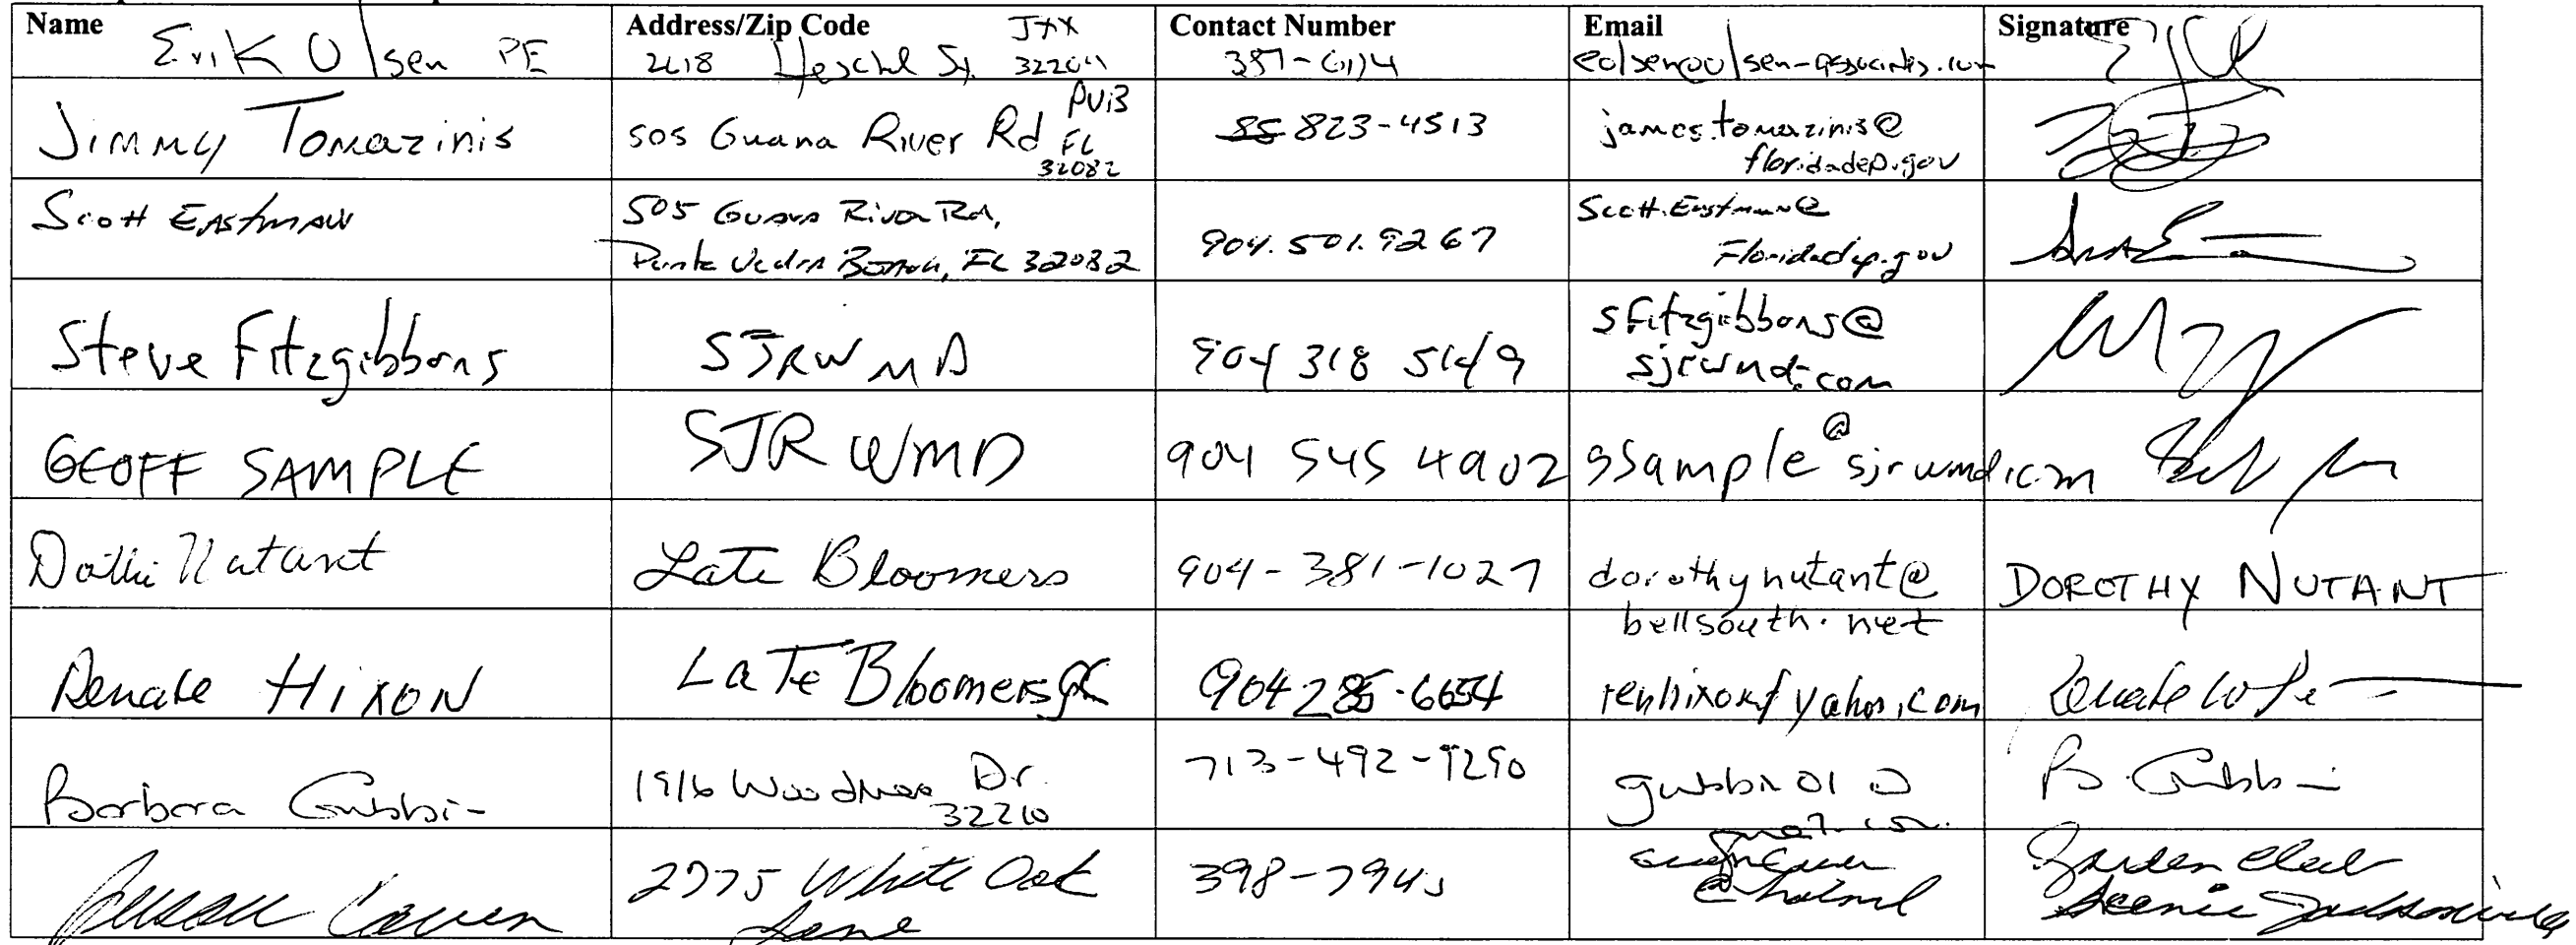 Name Address/Zip Code Contact Number Email Signature
Erik Olsen PE 2618 Herschel St. JAX 32204 387-6114 eolsen@olsen-associates.com
Jimmy Tomazinis 505 Guana River Rd PVB FL 32082 823-4513 james.tomazinis@
floridadep.gov
Scott Eastman 505 Guana River Rd, Scott.Eastman@
Ponte Vedra Beach, FL 32082 904.501.9267 Floridadep.gov
Steve Fitzgibbons SJRWMD 904 318 5149 sfitzgibbons@
sjrwmd.com
GEOFF SAMPLE SJRWMD 904 545 4902 gsample@sjrwmd.com
Dottie Nutant Late Bloomers 904-381-1027 dorothynutant@ DOROTHY NUTANT
bellsouth.net
Renate HIXON LaTe Bloomers GC 904 285-6654 yahoo.com
Barbara Gubbin 1916 Woodmere Dr. 713-492-9290 gubbin01@ B. Gubbin
32210 gmail.com
Susan Caven 2775 White Oak 398-7945 susancaven Garden Club
Lane @hotmail Scenic Jacksonville